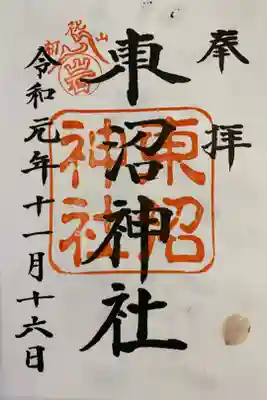 奉拝
東沼神社
東沼
神社
令和元年十一月十六日